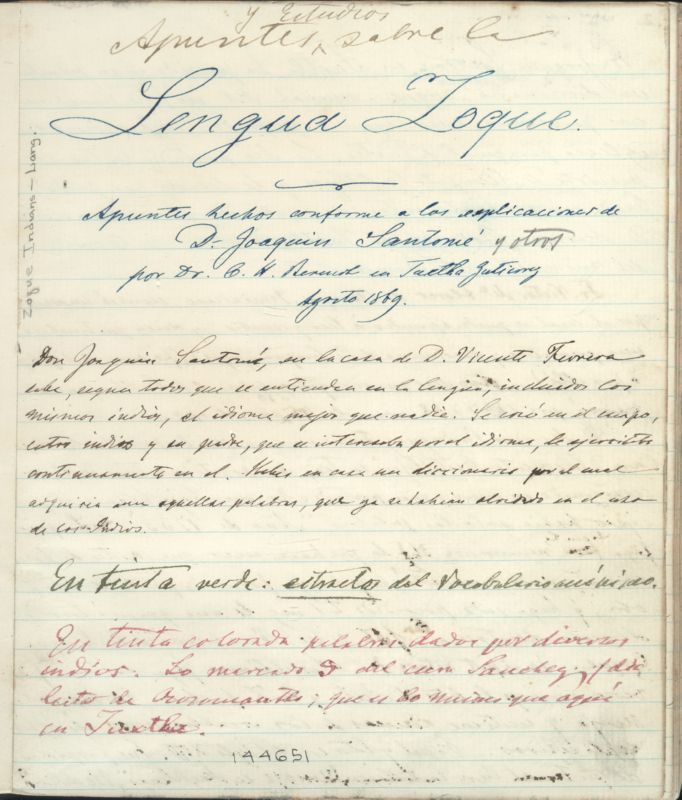 y Estudios
Apuntes ^ sobre la
Lengua Zoque.
Zoque Indians – Lang.
Apuntes hechos conforme a las esplicaciones de
D. Joaquin Santomé y otros
por Dr. C. H. Berendt en Tuxtla Gutierrez
Agosto 1869.
Don Joaquin Santomé, en la casa de D. Vicente Ferrera
sabe, segun todos que se entienden en la lengua, incluidos los
mismos indios, el idioma mejor que nadie. Se crió en el campo,
entre indios y su padre, que se interesaba por el idioma, le ejercitó
continuamente en el. Hubo en casa un diccionario por el cual
adquiria aun aquellas palabras, que ya se habian olvidado en el uso
de los Indios.
En tinta verde: estractos del Vocabulario anónimo.
En tinta colorada palabras dadas por diversos
indios. Lo marcado S del cura Sanchez, (dia
lecto de Ocozocuautla; que es lo mismo que aquí
en Tuxtla.
144651